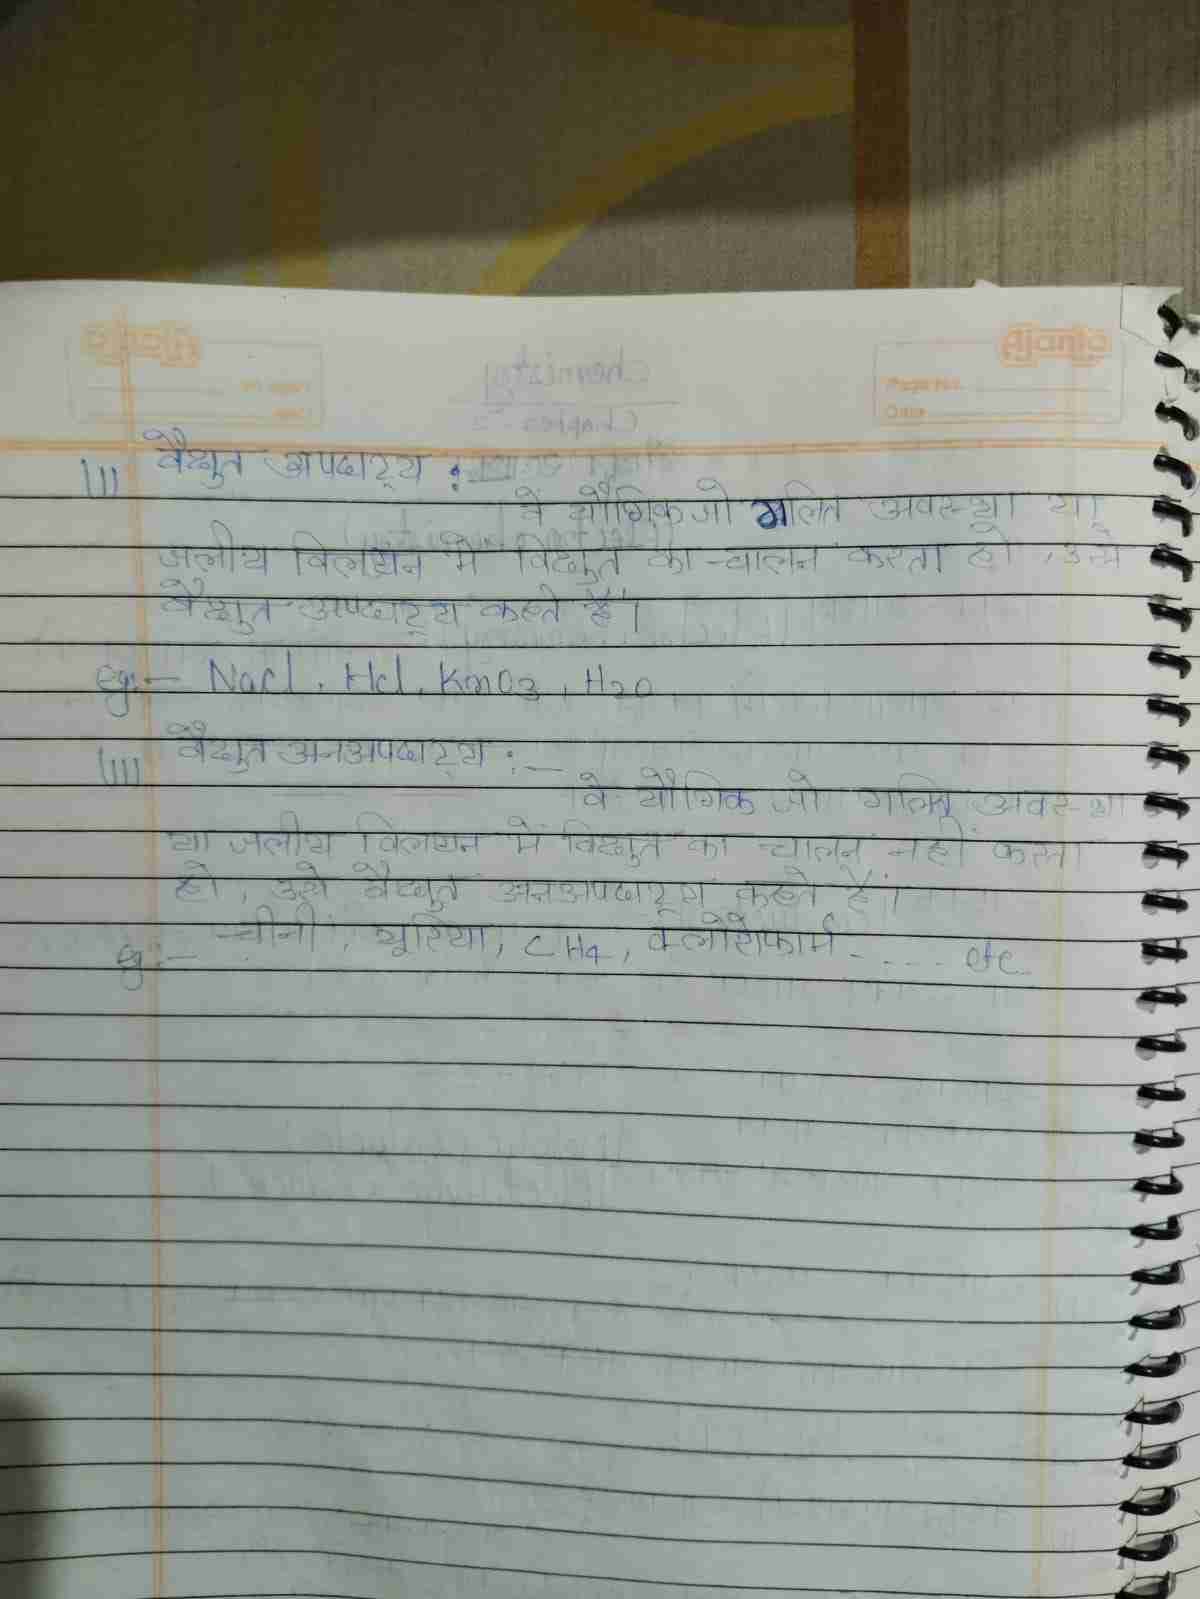 Ajanta
Page No.
Date
III वैद्युत अपघट्य :
वे यौगिक जो गलित अवस्था या
जलीय विलयन में विद्युत का चालन करता हो, उसे
वैद्युत अपघट्य कहते हैं।
eg:- Nacl, Hcl, KmO3, H2O
IIII वैद्युत अनअपघट्य :-
वे यौगिक जो गलित अवस्था
या जलीय विलयन में विद्युत का चालन नहीं करता
हो, उसे वैद्युत अनअपघट्य कहते हैं।
eg:- चीनी, यूरिया, CH4, क्लोरोफार्म .... etc